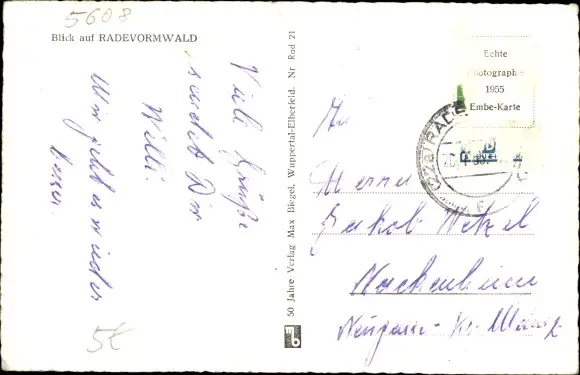 5608
Blick auf RADEVORMWALD
Viele Grüße
sendet Dir
Willi.
Mir geht es wieder
besser.
5€
50 Jahre Verlag Max Biegel, Wuppertal-Elberfeld. Nr Rad 21
Echte
Photographie
1955
Embe-Karte
(22a) RADE
An
Jakob Wetzel
Nackenheim
Kr. Mainz